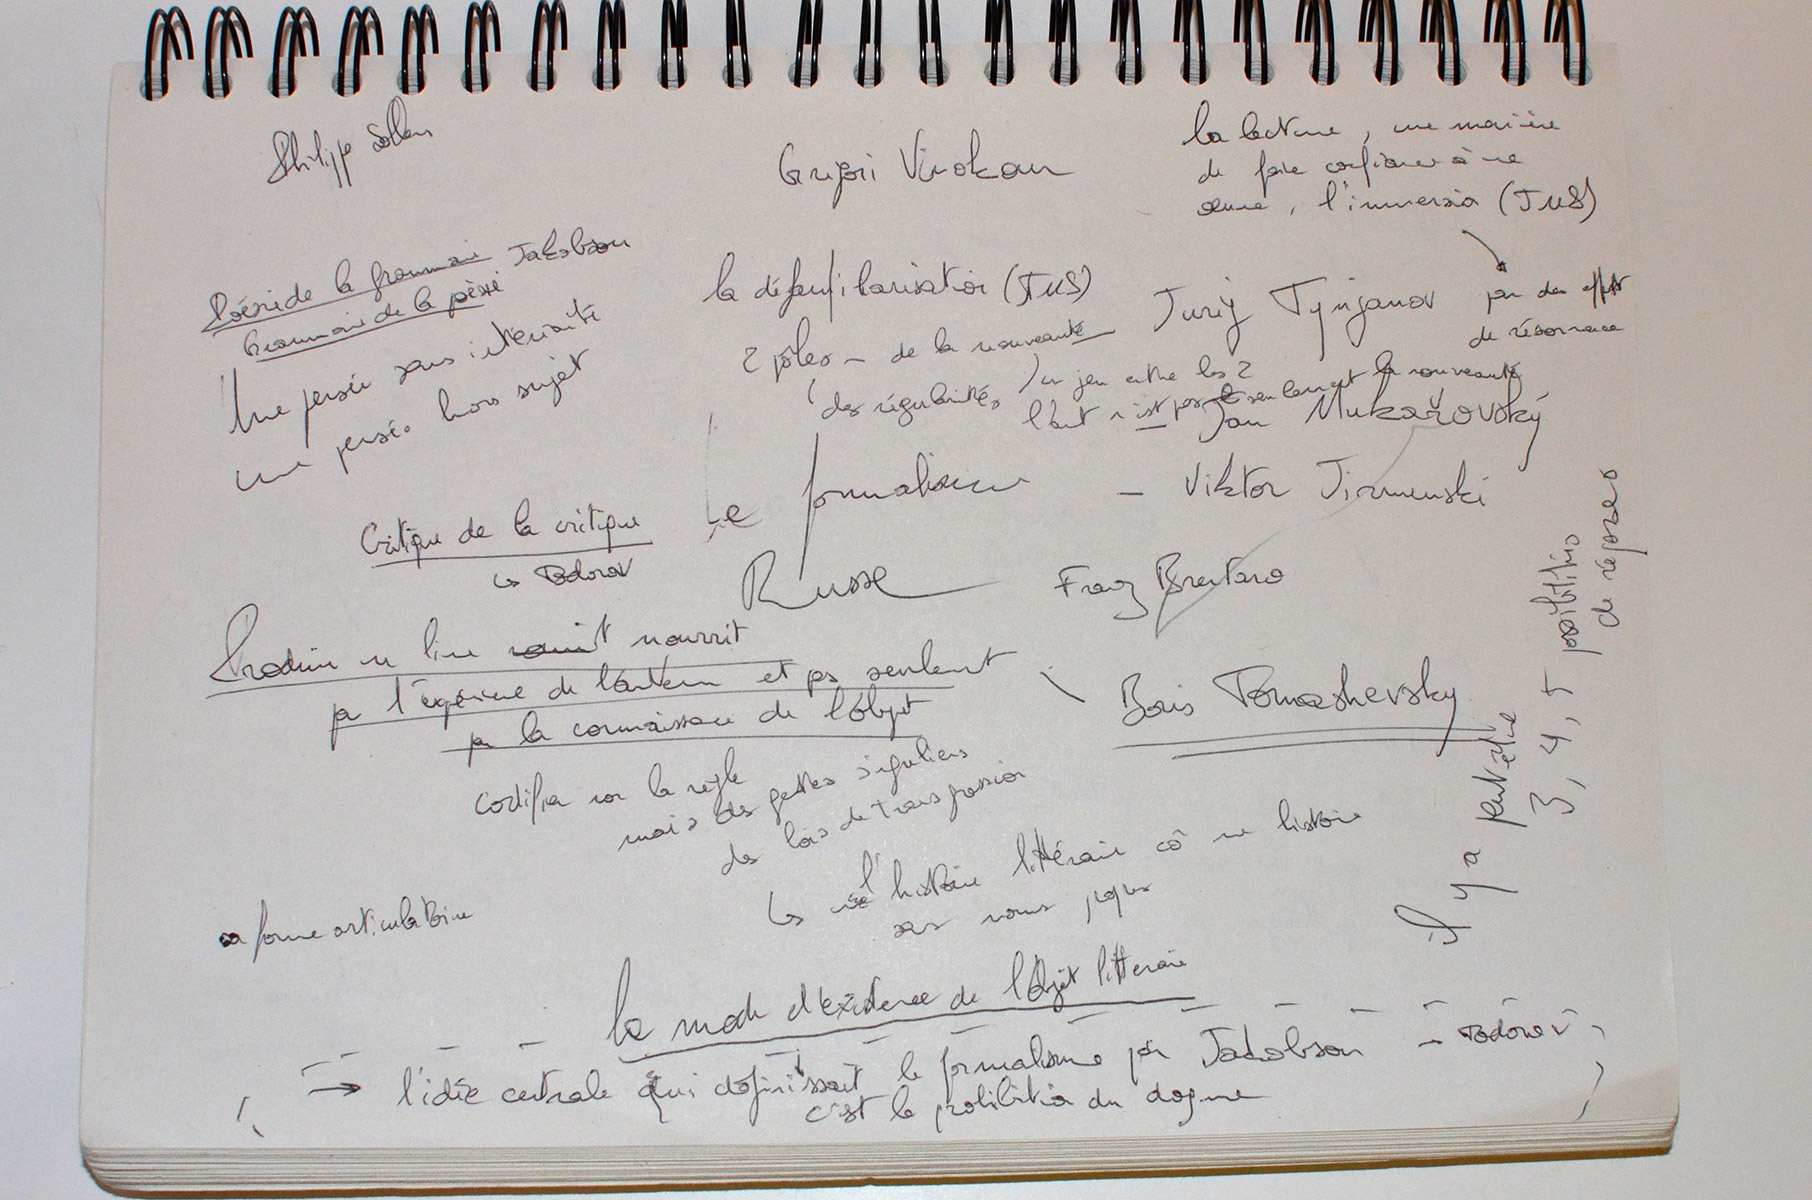 Philippe Sollers
Grigori Vinokour
la lecture, une manière
de faire confiance à une
œuvre, l'immersion (JMS)
par des effets
de résonnance
Poésie de la grammaire Jakobson
Grammaire de la poésie
Une pensée sans intériorité
une pensée hors sujet
la défamiliarisation (JMS)
2 pôles - de la nouveauté
des régularités / un jeu entre les 2
l'art n'est pas seulement la nouveauté
Jurij Tynjanov
Jan Mukařovský
Le formalisme
Russe
- Viktor Jirmunski
Franz Brentano
Boris Tomashevsky
Critique de la critique
↳ Todorov
Produire un livre nourrit
par l'expérience de l'auteur et pas seulement
par la connaissance de l'objet
codifier sur la règle
mais des gestes singuliers
des lois de transgression
↳ l'histoire littéraire cô une histoire
sans noms propres
Il y a peut-être
3, 4, 5 possibilités
de réponses
sa forme articulatoire
Le mode d'existence de l'objet littéraire
→ l'idée centrale qui définissait le formalisme par Jakobson - Todorov
c'est la prohibition du dogme